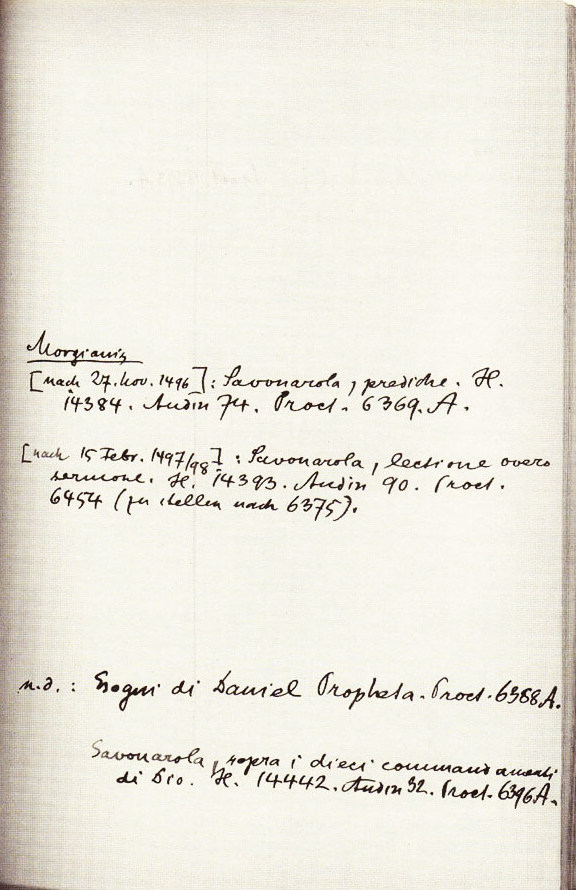 Morgianis
[nach 27. Nov. 1496]: Savonarola, prediche. H.
14384. Audin 74. Proct. 6369.A.
[nach 15 Febr. 1497/98]: Savonarola, lectione overo
sermone. H. 14393. Audin 90. Proct.
6454 (zu stellen nach 6375).
n.d.: Sogni di Daniel Propheta. Proct. 6388A.
Savonarola, sopra i dieci commandamenti
di Dio. H. 14442. Audin 32. Proct. 6396A.